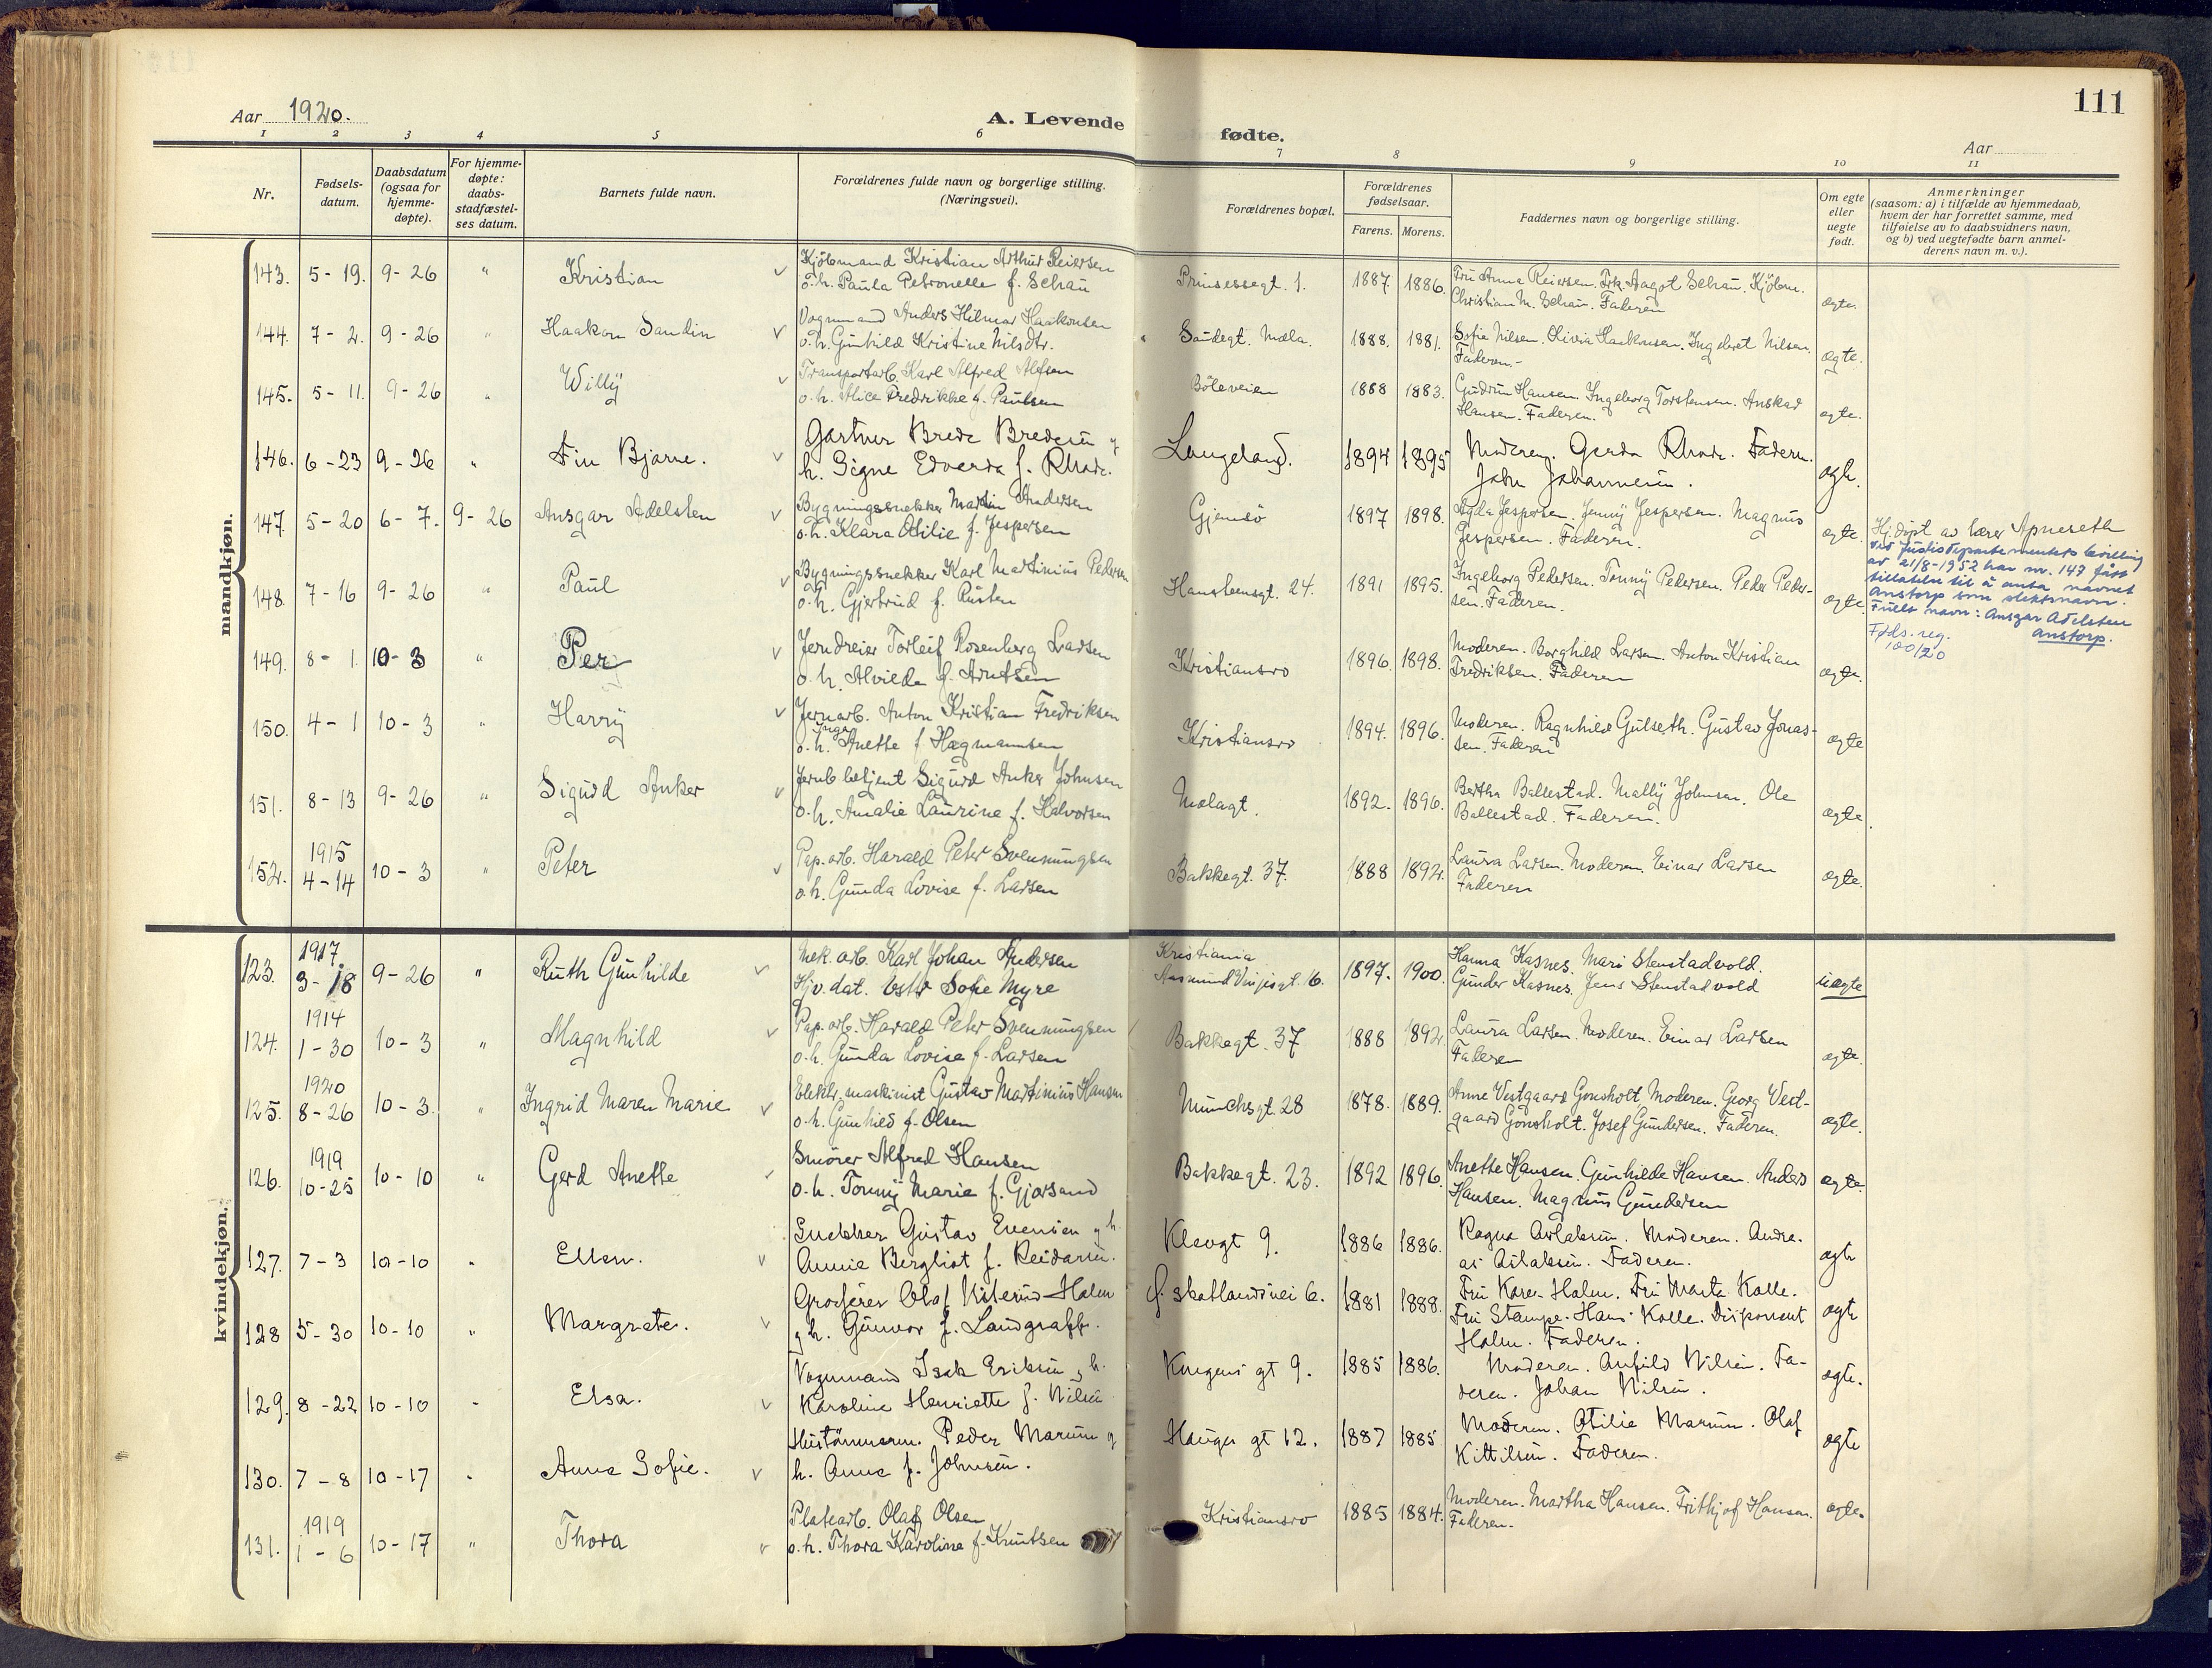 111
Aar 1920.
A. Levende fødte.
Aar
1 2 3 4 5 6 7 8 9 10 11
Nr.
Fødsels-
datum.
Daabsdatum
(ogsaa for
hjemme-
døpte).
For hjemme-
døpte:
daabs-
stadfæstel-
ses datum.
Barnets fulde navn.
Forældrenes fulde navn og borgerlige stilling.
(Næringsvei).
Forældrenes bopæl.
Forældrenes
fødselsaar.
Farens. Morens.
Faddernes navn og borgerlige stilling.
Om egte
eller
uegte
født.
Anmerkninger
(saasom: a) i tilfælde av hjemmedaab,
hvem der har forrettet samme, med
tilføielse av to daabsvidners navn,
og b) ved uegtefødte barn anmel-
derens navn m. v.).
mandkjøn.
143. 5-19. 9-26 " Kristian
Kjöbmand Kristian Arthur Reiersen
o. h. Paula Petronelle f. Schau
Prinsessegt. 1. 1887 1886.
Fru Anna Reiersen. Frk. Aagot Schau. Kjöbm.
Christian M. Schau. Faderen
egte.
144. 7-2. 9-26 " Haakon Sandin
Vognmand Anders Hilmar Haakonsen
o. h. Gunhild Kristine Nilsdtr.
Saudegt. Mæla. 1888. 1881.
Sofie Nilsen. Olivia Haakonsen. Ingebret Nilsen.
Faderen.-
egte.
145. 5-11. 9-26 " Willÿ
Transportarb. Karl Alfred Alfsen
o. h. Alice Fredrikke f. Paulsen
Böleveien 1888 1883.
Gudrun Hansen. Ingeborg Torstensen. Anskar
Hansen. Faderen.
egte.
146. 6-23 9-26 " Fin Bjarne.
Gartner Brede Bredesen og
h. Signe Edverda f. Rhode.
Langeland. 1894 1895
Moderen. Gerda Rhode. Faderen.
John Johannesen.
egte.
147. 5-20 6-7. 9-26 Ansgar Adelsten
Bygningssnekker Martin Andersen
o. h. Klara Otilie f. Jespersen
Gjemsö 1897 1898.
Agda Jespersen. Jenny Jespersen. Magnus
Jespersen. Faderen.
egte.
Hj.döpt av lærer Apneseth
Ved Justisdepartementets bevilling
av 21/8-1952 har nr. 147 fått
tillatelse til å anta navnet
Anstorp som slektsnavn.
Fulle navn: Ansgar Adelsten
Anstorp.
Føds. reg.
100/20
148. 7-16 9-26 " Paul
Bygningssnekker Karl Martinius Pedersen
o. h. Gjertrud f. Rusten
Hansteensgt. 24. 1891 1895.
Ingeborg Pedersen. Tonny Pedersen. Peder Peder-
sen. Faderen.
egte
149. 8-1. 10-3 " Per
Jerndreier Torleif Rosenberg Larsen
o. h. Alvilde f. Arntsen
Kristiansro 1896. 1898.
Moderen. Borghild Larsen. Anton Kristian
Fredriksen. Faderen
egte.
150. 4-1 10-3 " Harrÿ
Jernarb. Anton Kristian Fredriksen
Inga
o. h. Anette f. Hagmannsen
Kristiansro 1894. 1896.
Moderen. Ragnhild Gulseth. Gustav Jonas-
sen. Faderen
egte
151. 8-13 9-26 " Sigurd Anker
Jernb. betjent Sigurd Anker Johnsen
o. h. Amalie Laurine f. Halvorsen
Mælagt. 1892. 1896.
Bertha Ballestad. Mally Johnsen. Ole
Ballestad. Faderen.
egte.
152. 1915
4-14 10-3 " Peter
Pap. arb. Harald Peter Svenningsen
o. h. Gunda Lovise f. Larsen
Bakkegt. 37. 1888 1892.
Laura Larsen. Moderen. Einar Larsen
Faderen
egte.
kvindekjøn.
123. 1917.
3-18 9-26 " Ruth Gunhilde
Mek. arb. Karl Johan Andersen
Hjv. dat. Ester Sofie Myre
Kristiania
Aasmund Vinjesgt. 16. 1897. 1900.
Hanna Kasnes. Mari Stenstadvold.
Gunder Kasnes. Jens Stenstadvold
uegte
124. 1914
1-30 10-3 " Magnhild
Pap. arb. Harald Peter Svenningsen
o. h. Gunda Lovise f. Larsen
Bakkegt. 37 1888 1892.
Laura Larsen. Moderen. Einar Larsen
Faderen
egte.
125. 1920
8-26 10-3. " Ingrid Maren Marie
Elektr. maskinist Gustav Martinius Hansen
o. h. Gunhild f. Olsen
Munchsgt. 28 1878. 1889.
Anne Vestgaard Gonsholt. Moderen. Georg Vest-
gaard Gonsholt. Josef Gundersen. Faderen.
egte.
126. 1919
10-25 10-10 " Gerd Anette
Smører Alfred Hansen
o. h. Tonny Marie f. Gjorsand
Bakkegt. 23. 1892 1896.
Anette Hansen. Gunhilde Hansen. Anders
Hansen. Magnus Gundersen
egte.
127. 7-3 10-10 " Ellen.
Snekker Gustav Evensen og h.
Annie Bergliot f. Reidarsen.
Klevgt 9. 1886 1886.
Ragna Aslaksen. Moderen. Andre-
as Aslaksen. Faderen.
egte
128 5-30 10-10 " Margrete.
Grosserer Olaf Kiterud Holm
og h. Gunvor f. Landgraff.
G. Skotlandsvei 6. 1881 1888.
Fru Karen Holm. Fru Marta Kolle.
Fru Stampe. Hans Kolle. Disponent
Holm. Faderen.
egte
129. 8-22 10-10 " Elsa.
Vognmand Isak Eriksen og h.
Karoline Henriette f. Nilsen
Kongens gt 9. 1885 1886.
Moderen. Anfild Nilsen. Fa-
deren. Johan Nilsen.
egte.
130. 7-8 10-17 " Anna Sofie.
Hustömmerm. Peder Marum og
h. Anna f. Johnsen.
Hauges gt 12. 1887 1885
Moderen. Otilie Marum. Olaf
Kittilsen. Faderen.
egte
131. 1919
1-6 10-17 " Thora
Platearb. Olaf Olsen
o. h. Thora Karoline f. Knutsen
Kristiansro 1885 1884.
Moderen. Martha Hansen. Frithjof Hansen.
Faderen.
egte.